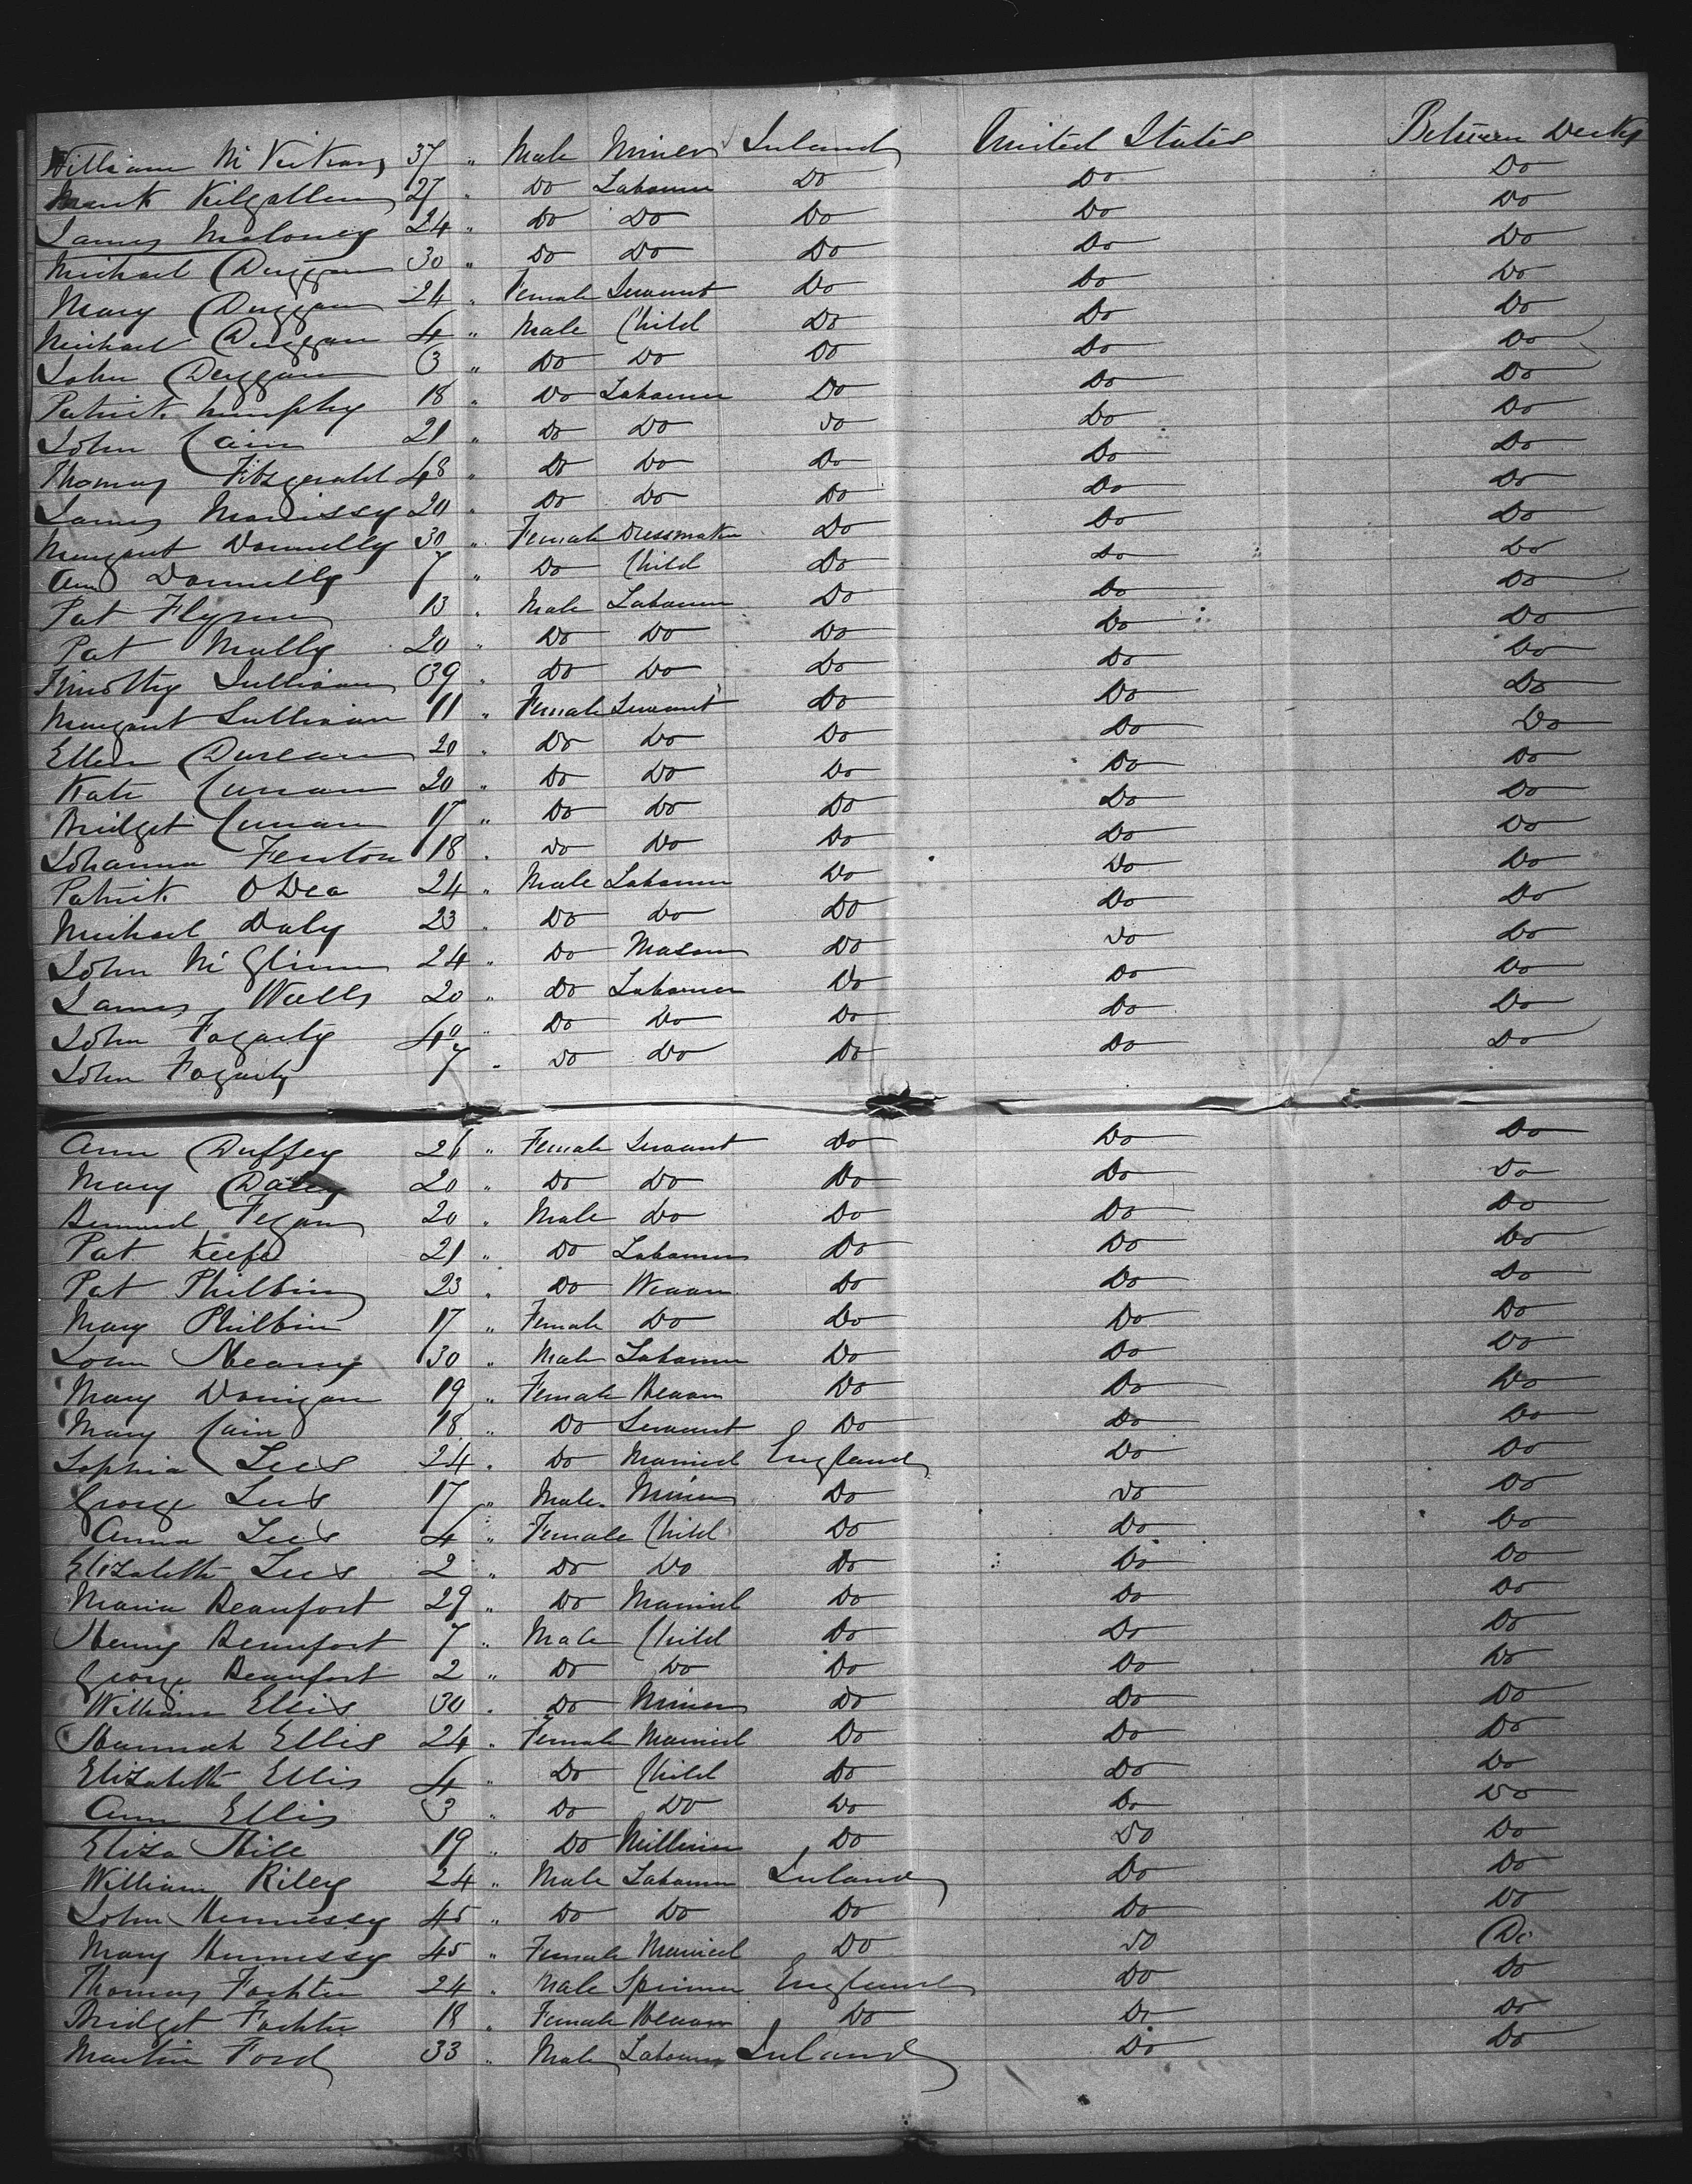 William 37 " Male Miner Ireland United States Between Decks
Mark Kilgallen 27 " Do Labourer Do Do Do
James Maloney 24 " Do Do Do Do Do
Michael Duggan 30 " Do Do Do Do Do
Mary Duggan 24 " Female Servant Do Do Do
Michael Duggan 4 " Male Child Do Do Do
John Duggan 3 " Do Do Do Do Do
Patrick Murphy 18 " Do Labourer Do Do Do
John Cain 21 " Do Do Do Do Do
Thomas Fitzgerald 48 " Do Do Do Do Do
James Morrissy 20 " Do Do Do Do Do
Margaret Donnelly 30 " Female Dressmaker Do Do Do
Ann Donnelly 7 " Do Child Do Do Do
Pat Flynn 13 " Male Labourer Do Do Do
Pat Mally 20 " Do Do Do Do Do
Timothy Sullivan 39 " Do Do Do Do Do
Margaret Sullivan 11 " Female Servant Do Do Do
Ellen 20 " Do Do Do Do Do
Kate Curran 20 " Do Do Do Do Do
Bridget Curran 17 " Do Do Do Do Do
Johanna Fenton 18 " Do Do Do Do Do
Patrick O Dea 24 " Male Labourer Do Do Do
Michael Daly 23 " Do Do Do Do Do
John McGlinn 24 " Do Mason Do Do Do
James Walls 20 " Do Labourer Do Do Do
John Fogarty 40 " Do Do Do Do Do
John Fogarty 7 " Do Do Do Do Do
Ann Duffey 26 " Female Servant Do Do Do
Mary Daley 20 " Do Do Do Do Do
Bernard Fegan 20 " Male Do Do Do Do
Pat Keefe 21 " Do Labourer Do Do Do
Pat Philbin 23 " Do Weaver Do Do Do
Mary Philbin 17 " Female Do Do Do Do
John Heany 30 " Male Labourer Do Do Do
Mary Donigan 19 " Female Weaver Do Do Do
Mary Cain 18 " Do Servant Do Do Do
Sophia Lees 24 " Do Married England Do Do
George Lees 17 " Male Miner Do Do Do
Anna Lees 4 " Female Child Do Do Do
Elizabeth Lees 2 " Do Do Do Do Do
Maria Beaufort 29 " Do Married Do Do Do
Henry Beaufort 7 " Male Child Do Do Do
George Beaufort 2 " Do Do Do Do Do
William Ellis 30 " Do Miner Do Do Do
Hannah Ellis 24 " Female Married Do Do Do
Elizabeth Ellis 4 " Do Child Do Do Do
Ann Ellis 3 " Do Do Do Do Do
Eliza Hill 19 " Do Milliner Do Do Do
William Riley 24 " Male Labourer Ireland Do Do
John Hennessy 45 " Do Do Do Do Do
Mary Hennessy 45 " Female Married Do Do Do
Thomas 24 " Male Spinner England Do Do
Bridget 18 " Female Weaver Do Do Do
Martin Ford 33 " Male Labourer Ireland Do Do